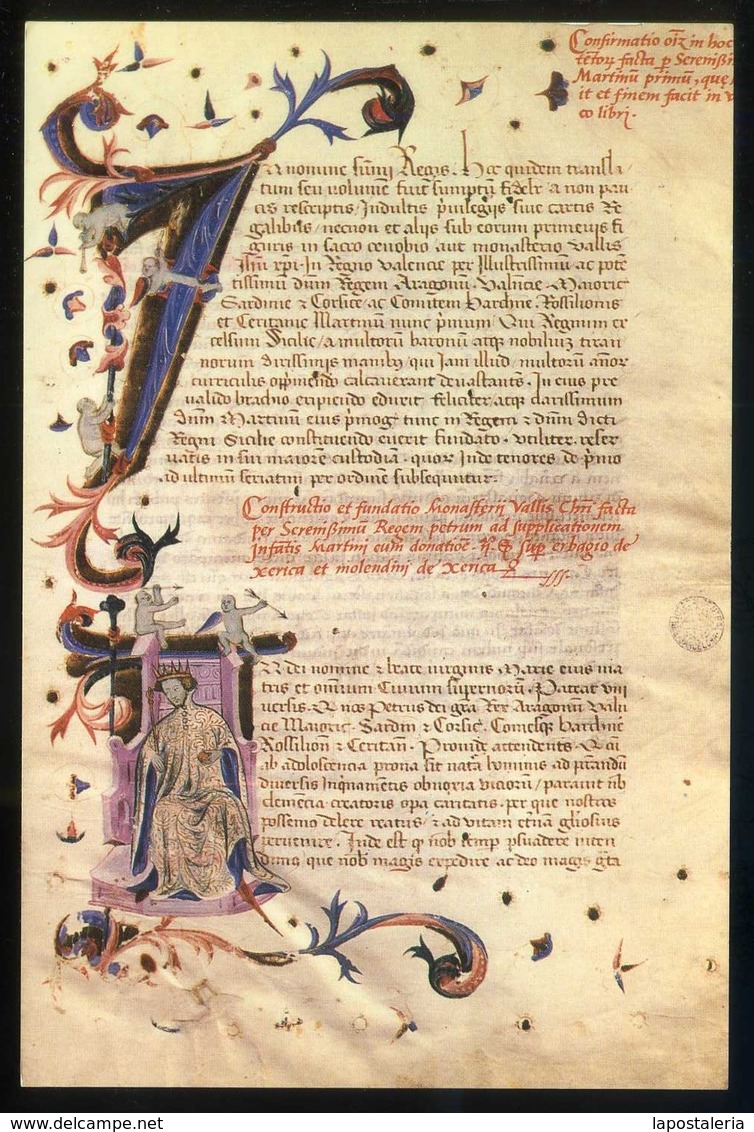 Confirmatio oīz in hoc
facta p Serenißi
Martinū primū, quę
it et finem facit in
co libri.
nomine sūmi Regis. Hec quidem transla
tum seu volumē fuit sumptū fidelr a non pau
cis rescriptis / Indultis p̄uilegijs siue cartis Re
galibus / necnon et alijs sub eorum primeuis fi
guris in sacro cenobio aut monasterio Vallis
Ihū xp̄i. In Regno Valencie per Illustrissimū ac potē
tissimū dn̄m Regem Aragonū. Valēcie. Maioric
Sardinie & Corsice. ac Comitem Barchn̄e. Rossilionis
et Ceritanie Martinum nunc p̄mum. Qui Regnum ex
celsum Sicilie / a multorū baronū atqz nobiliuz tiran
norum dirissimis manibz / qui iam illud / multorū annor
curriculis opp̄mendo calcauerant deuastantes. In eius pre
ualido brachio eripiendo eduxit feliciter / atqz clarissimum
dn̄m Martinū eius p̄mog tunc in Regem & dn̄m dicti
Regni Sicilie constituendo fundato. Vtiliter. reser
uatis in sui maiorē custodiā. quor inde tenores de p̄mo
ad ultimū seriatim per ordinē subsequuntur.
Constructio et fundatio Monasterij Vallis Chr̄i facta
per Serenißimū Regem petrum ad supplicationem
Infātis Martinj cum donatiōe. sup erbagio de
Xerica et molendinj de Xerica
dei nomine & beate virginis Marie eius ma
tris et om̄ium Ciuium supernorū. Pateat vni
uersis. Q nos Petrus dei gr̄a Rex Aragonū Valēt
cie Maioric. Sardin & Corsic. Comesqz Barchn̄e
Rossilion & Ceritan̄. Prouide attendentes. Q cū
ab adolescencia prona sit natā hominis ad peccandū
diuersis inq̄namētis obnoxia viciorū / parauit nob
clemēcia creatoris opa caritatis. per que nostros
possemo delere reatus / & ad vitam et̄nam gl̄iosius
peruenire. Inde est q nob semp p̄suadere inten
dimus que nob magis expedire ac deo magis gr̄ta
lapostaleria